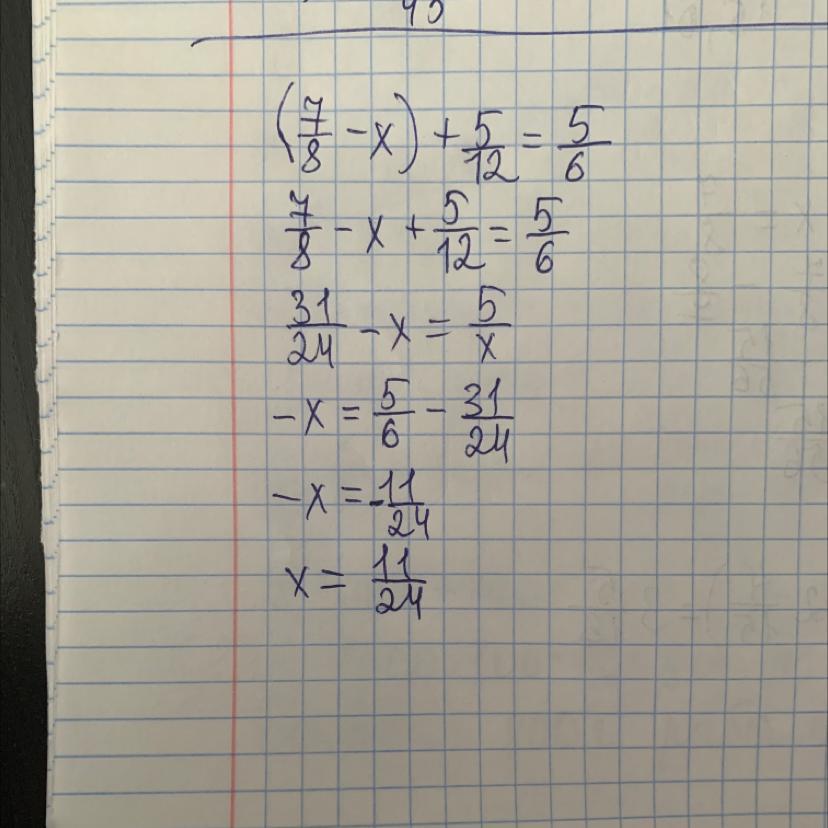 40
(7/8 - x) + 5/12 = 5/6
7/8 - x + 5/12 = 5/6
31/24 - x = 5/x
-x = 5/6 - 31/24
-x = -11/24
x = 11/24